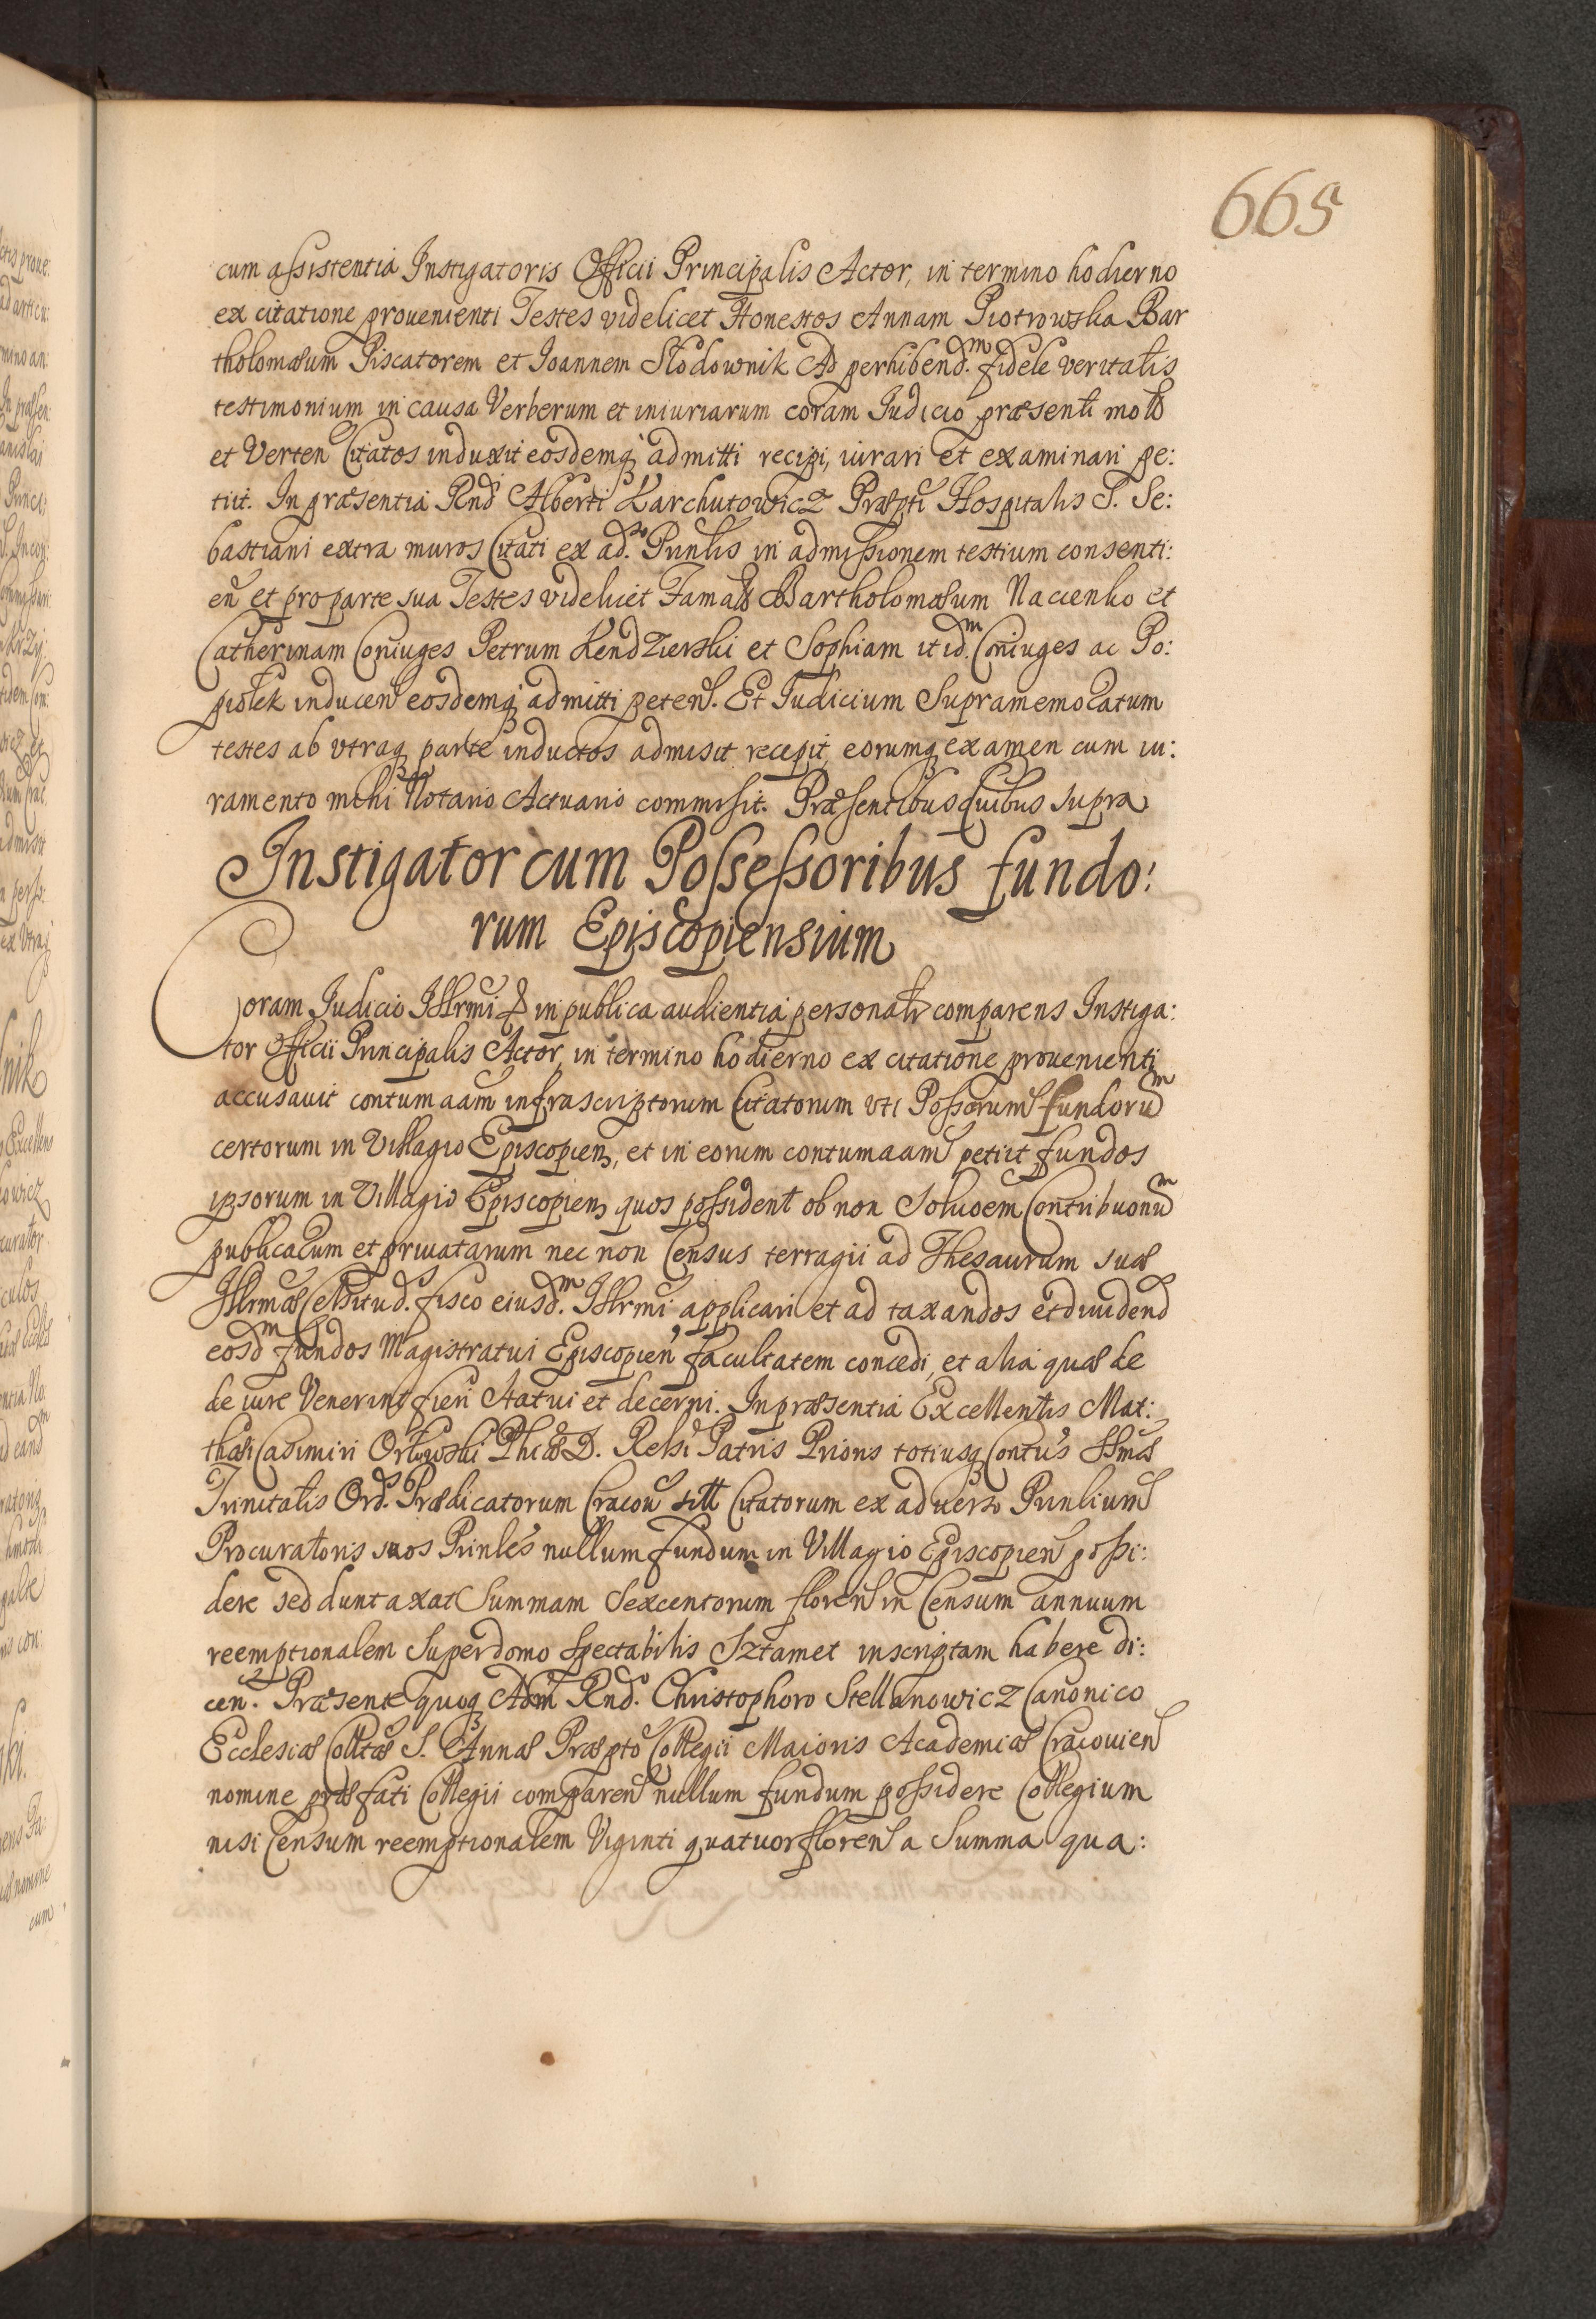 665
cum assistentia Instigatoris Officii Principalis Actor, in termino hodierno
ex citatione prouenienti Testes videlicet Honestos Annam Piotrowska Bar
tholomæum Piscatorem et Joannem Słodownik Ad perhibend.m fidele veritatis
testimonium in causa Verberum et iniuriarum coram Judicio præsenti moto
et Verten Citatos induxit eosdemq admitti recipi, iurari et examinari pe:
tiit. In præsentia Rndi Alberti Karchutowicz Præpti Hospitalis S. Se:
bastiani extra muros Citati ex ad.o Prinlis in admissionem testium consenti:
en et pro parte sua Testes videlicet Famat Bartholomæum Nacienko et
Catherinam Coniuges Petrum Kendzierski et Sophiam itid.m Coniuges ac Po:
piołek inducen eosdemq admitti peten. Et Judicium Supramemoratum
testes ab vtraq parte inductos admisit recepit, eorumq examen cum iu:
ramento mihi Notario Actuario commisit. Præsentibus Quibus supra
Instigator cum Possessoribus fundo:
rum Episcopiensium
Coram Judicio Illrmi & in publica audientia personalr comparens Instiga:
tor Officii Principalis Actor, in termino hodierno ex citatione prouenienti
accusauit contumaam infrascriptorum Citatorum vti Possorum fundorum
certorum in Villagio Episcopien, et in eorum contumaam petiit fundos
ipsorum in Villagio Episcopien quos possident ob non Soluoem Contribuonum
publicarum et priuatarum nec non Census terragii ad Thesaurum suæ
Illrmæ Celsitud. fisco eiusd.m Illrmi applicari et ad taxandos et diuidend
eosdm fundos Magistratui Episcopien facultatem concedi, et alia quæ de
de iure Venerint fieri Statui et decerni. In præsentia Excellentis Mat:
thæi Casimiri Orłowski Phiæ D. Relsi Patris Prioris totiusq Contus SSmæ
Trinitatis Ord. Prædicatorum Cracou sitt Citatorum ex aduerso Prinlium
Procuratoris suos Prinles nullum fundum in Villagio Episcopien possi:
dere sed duntaxat Summam Sexcentorum floren in Censum annuum
reemptionalem Super domo Spectabilis Sztamet inscriptam habere di:
cen. Præsente quoq Adm Rnd.o Christophoro Stellanowicz Canonico
Ecclesiæ Colltæ S. Annæ Præpto Collegii Maioris Academiæ Cracouien
nomine præfati Collegii comparen nullum fundum possidere Collegium
nisi Censum reemptionalem Viginti quatuor floren a Summa qua: